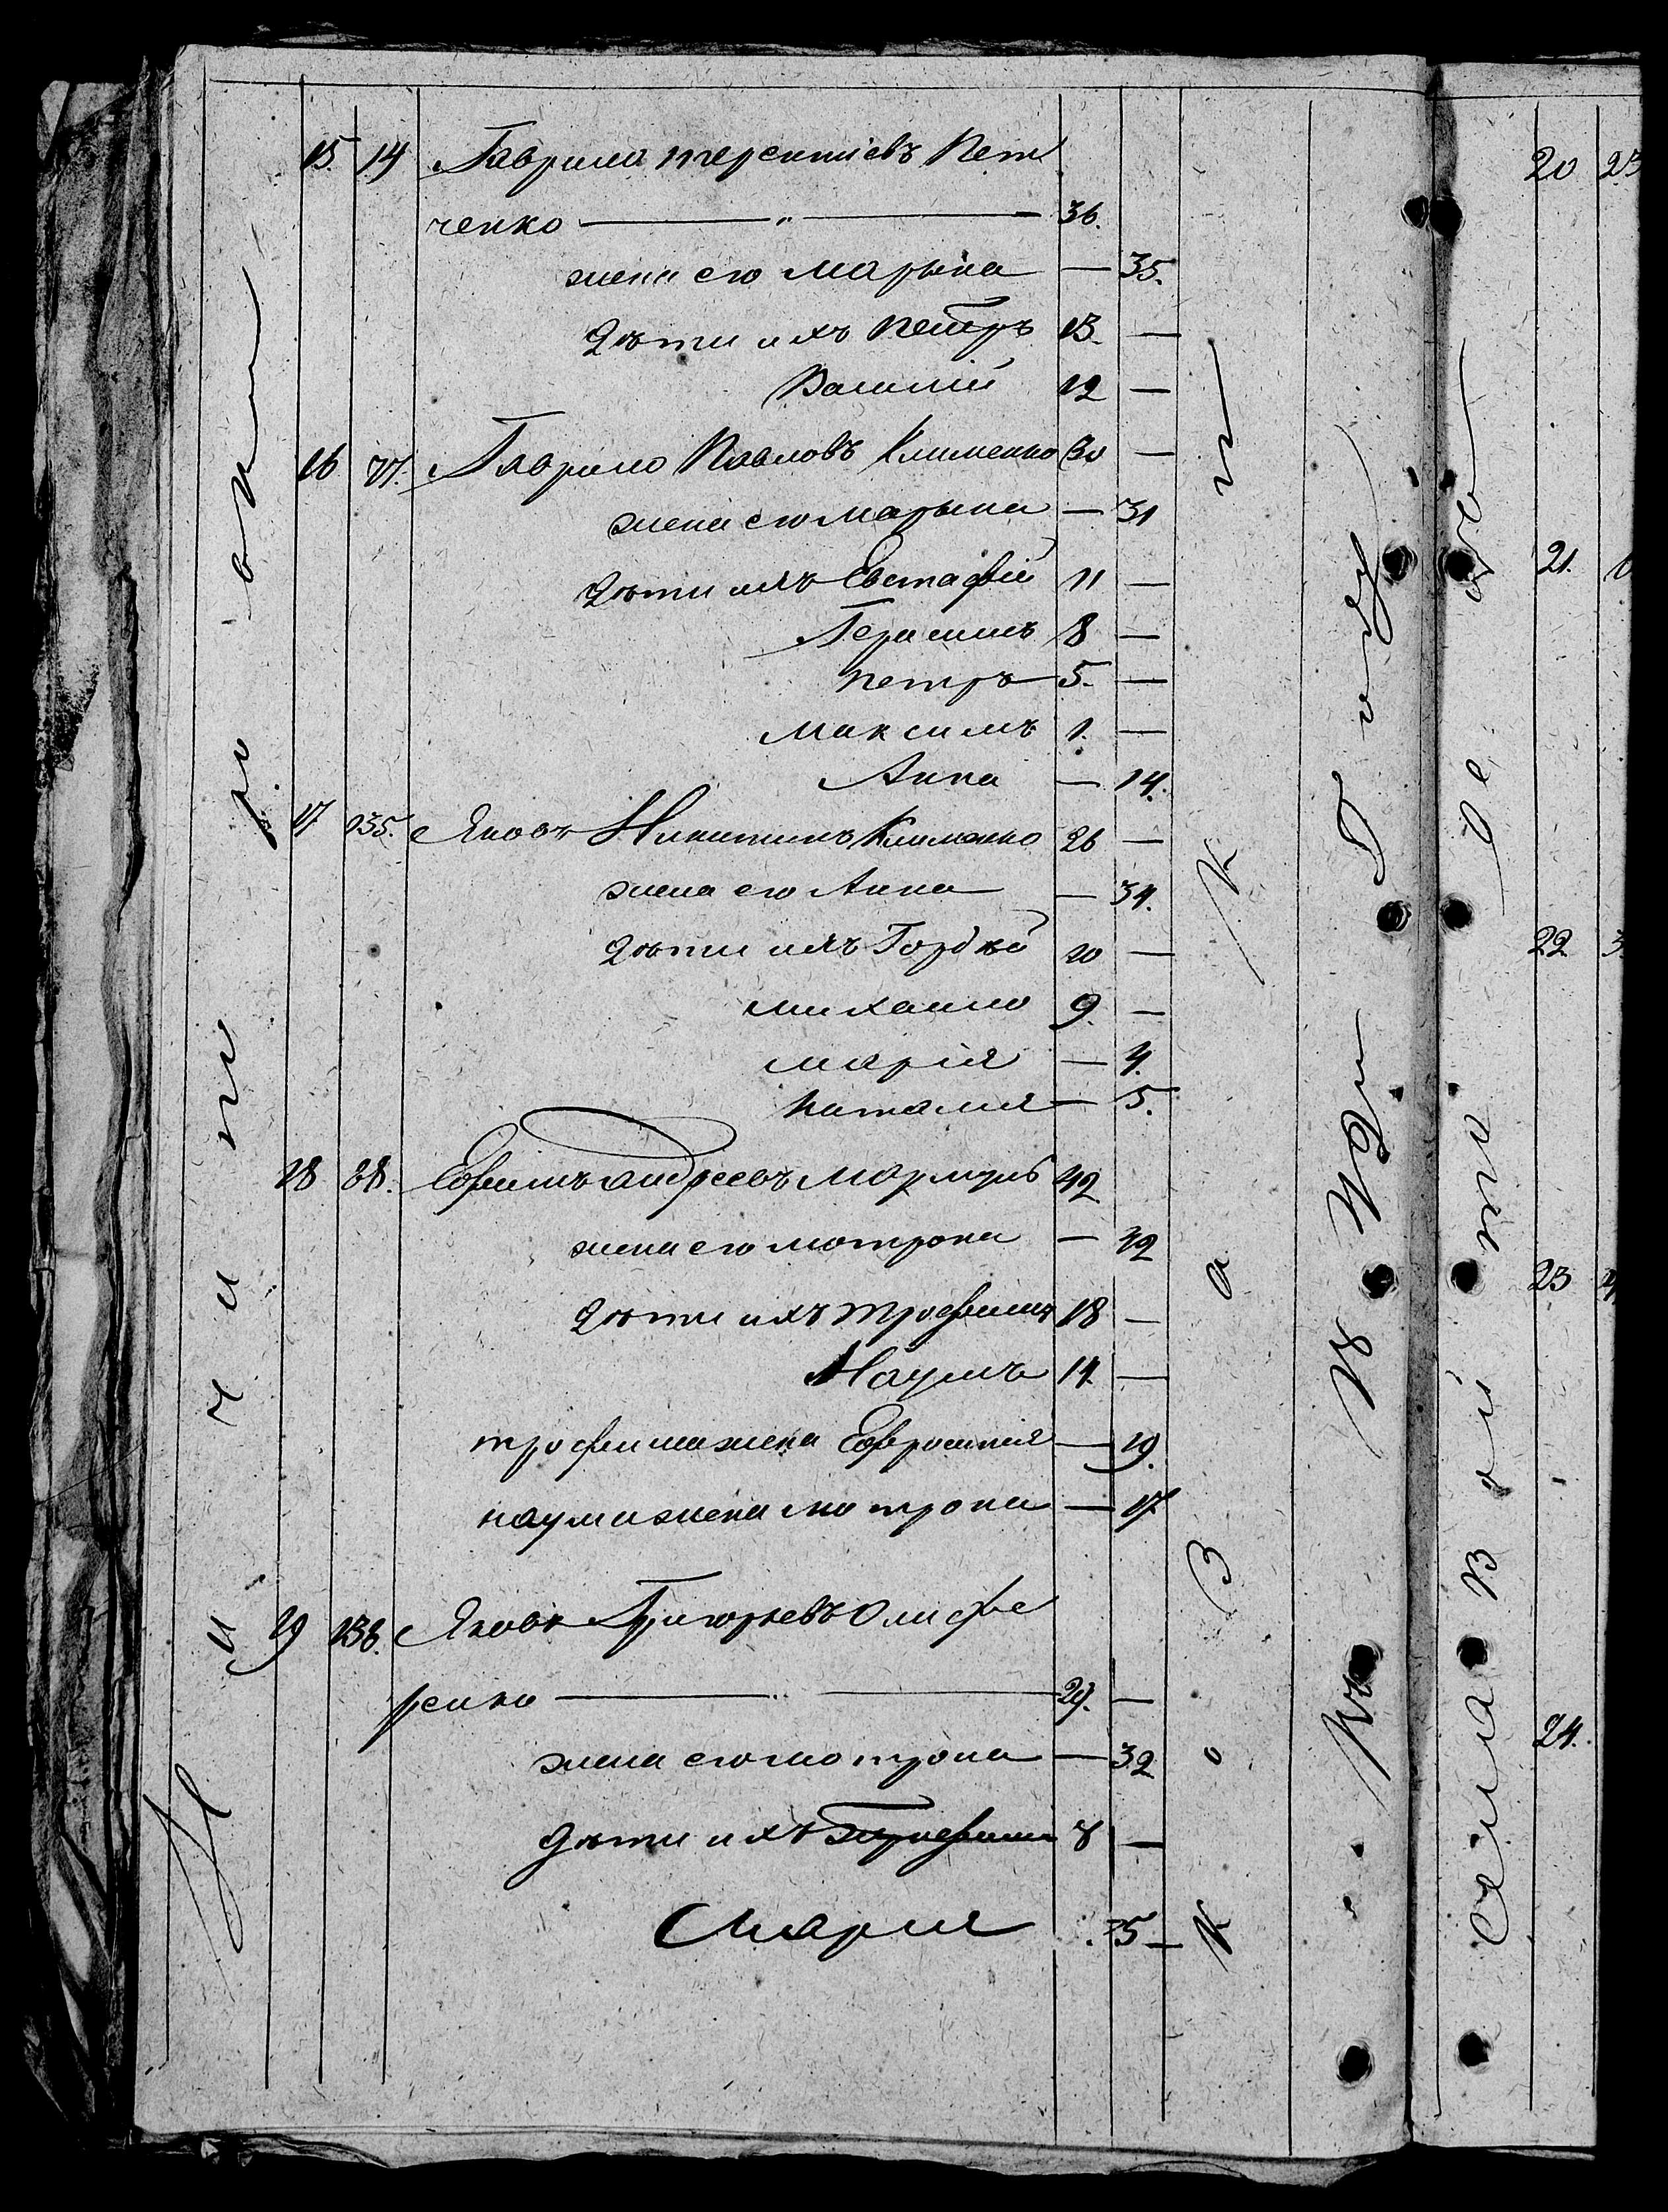 15. 14 Гаврила терентіевъ Пет
ченко — „ — 36.
жена его марьина — 35.
дѣти ихъ петръ 13. —
Василій 12 —
16 77. Гаврило Павловъ Клименко 30 —
жена его марьина — 31
дѣти ихъ Евстафій 11 —
Герасимъ 8 —
петръ 5. —
максимъ 1. —
Анна — 14.
17 135. Яковъ Никитинъ Клименко 26 —
жена его Анна — 34.
дѣти ихъ Гордѣй 10 —
михаило 9. —
марія — 4.
наталия — 5.
18 38. Ефимъ андреевъ 42
жена его мотрона — 42
дѣти ихъ трофимъ 18 —
Наумъ 14 —
трофима жена Евфросинія — 19.
наума жена мотрона — 17
19 138. Яковъ Григорьевъ Олифе
ренко — „ — 29. —
жена его мотрона — 32
дѣти ихъ трофимъ 8 —
Мария 5 —
К о З а К и
Года
20 23
21.
22
23
24.